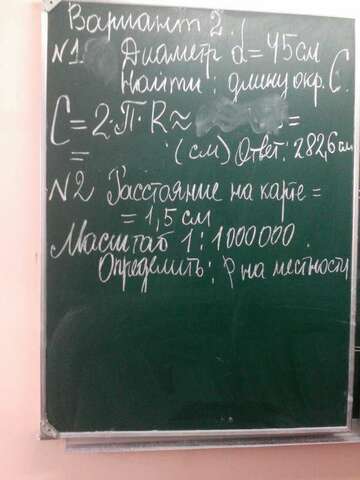 Вариант 2.
N1 Диаметр d=45см
Найти: длину окр. C.
C=2·П·R≈ =
= (см) Ответ: 282,6 см
N2 Расстояние на карте =
= 1,5 см
Масштаб 1:1000000.
Определить: ρ на местности